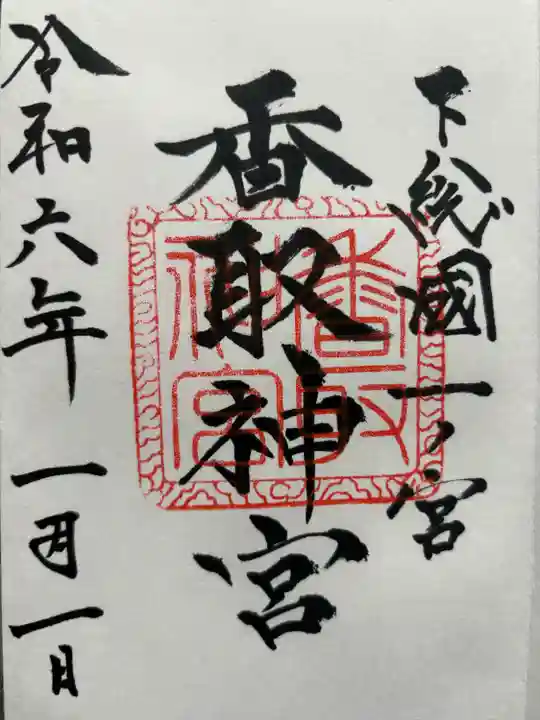 下総國一ノ宮
香取神宮
令和六年一月一日
香取神宮